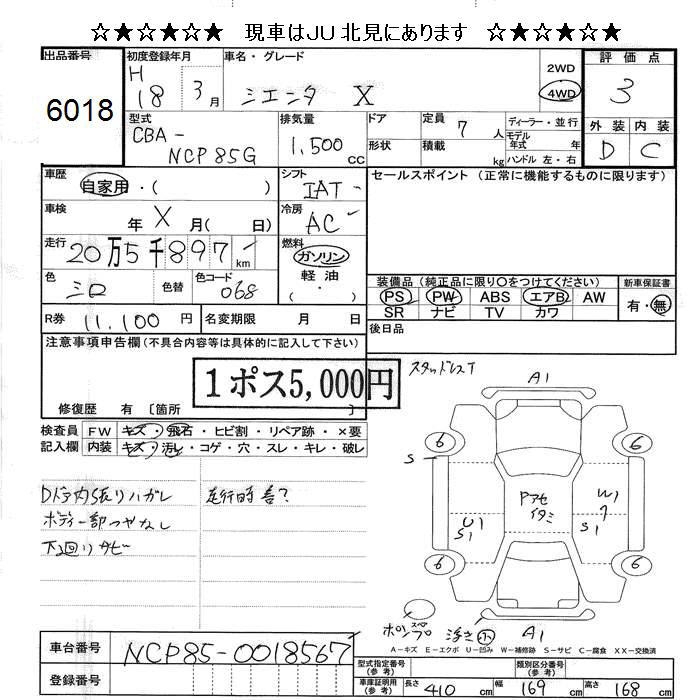 ☆★☆★☆ 現車はJU北見にあります ☆★☆★☆
出品番号 6018
初度登録年月 H18 3月
車名・グレード シエンタ X
2WD
4WD
評価点 3
外装 D 内装 C
型式 CBA-NCP85G
排気量 1,500 cc
ドア
形状
定員 7 人
積載 kg
ディーラー・並行
モデル年式 年
ハンドル 左・右
車歴 自家用・( )
シフト IAT
冷房 AC
セールスポイント (正常に機能するものに限ります)
車検 年 X 月( 日)
走行 20万5千897 km
燃料 ガソリン
軽油
( ・ )
色 シロ 色替 色コード 068
装備品 (純正品に限り○をつけてください)
PS PW ABS エアB AW
SR ナビ TV カワ
新車保証書 有・無
R券 11,100 円 名変期限 月 日
後日品
注意事項申告欄 (不具合内容等は具体的に記入して下さい)
1ポス5,000円
修復歴 有 〔箇所 〕
検査員記入欄
FW キズ・飛石・ヒビ割・リペア跡・×要
内装 キズ・汚れ・コゲ・穴・スレ・キレ・破レ
Dドア内張りハガレ
ボディー部つやなし
下廻りサビ
走行時音?
スタッドレスT
A1
6
6
S
Pアセ
イタミ
W1
S1
U1
S1
6
6
浮き 小
A1
A-キズ E-エクボ U-凹み W-補修跡 S-サビ C-腐食 XX-交換済
車台番号 NCP85-0018567
登録番号
型式指定番号 (参考)
類別区分番号 (参考)
車庫証明用 (参考) 長さ 410 cm 幅 169 cm 高さ 168 cm